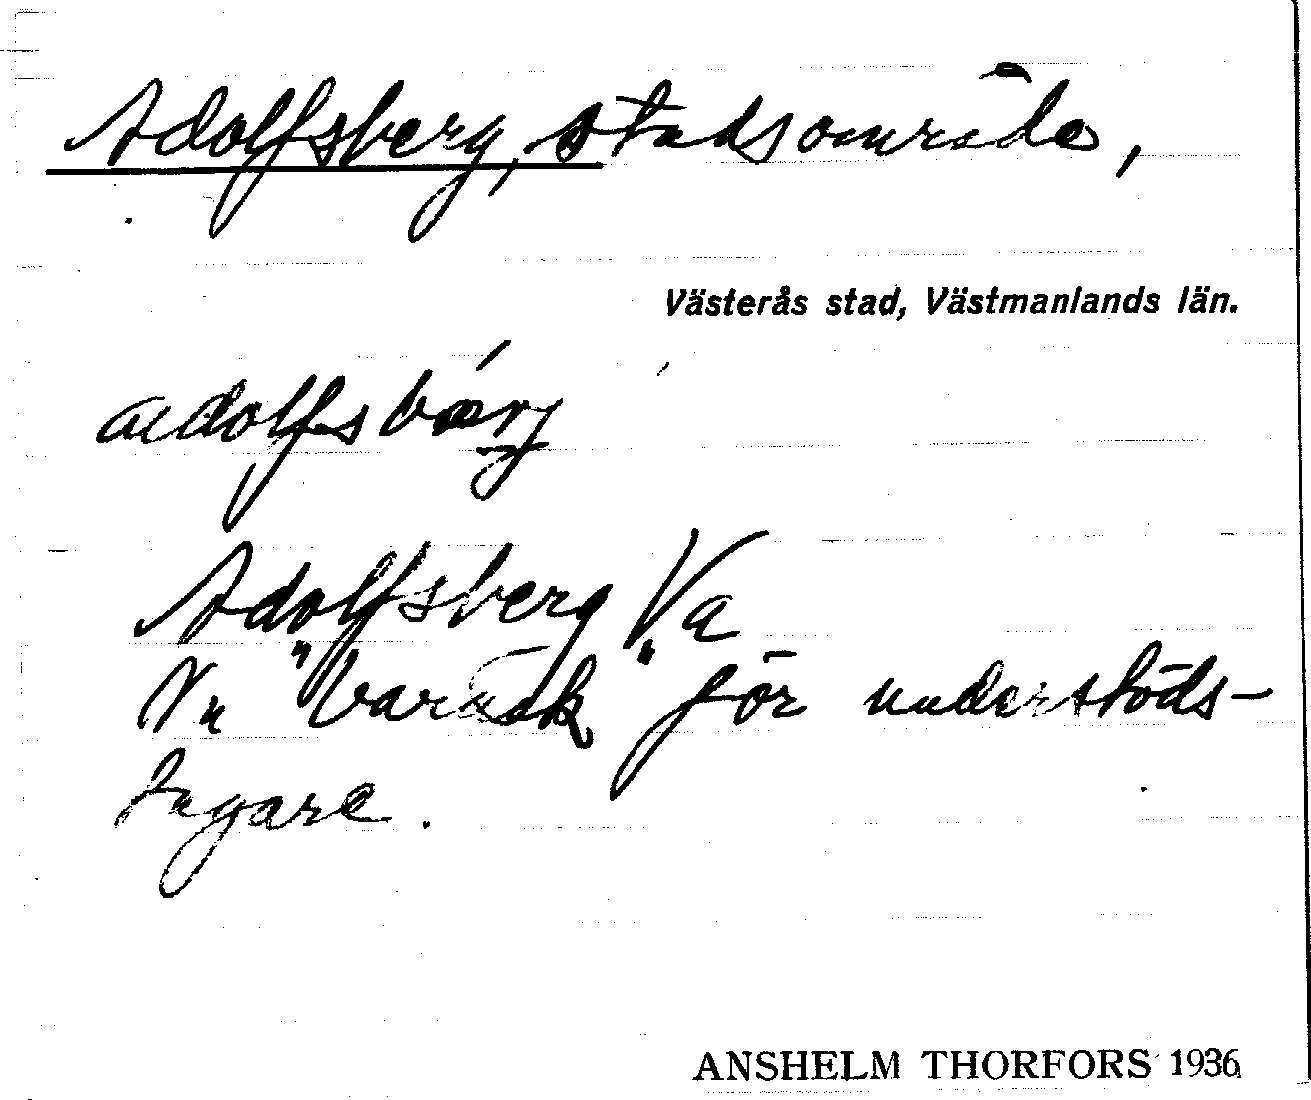 Adolfsberg, stadsområde,
Västerås stad, Västmanlands län.
adolfsbærj
Adolfsberg Va
Nu "barack" för understöds-
tagare.
ANSHELM THORFORS 1936